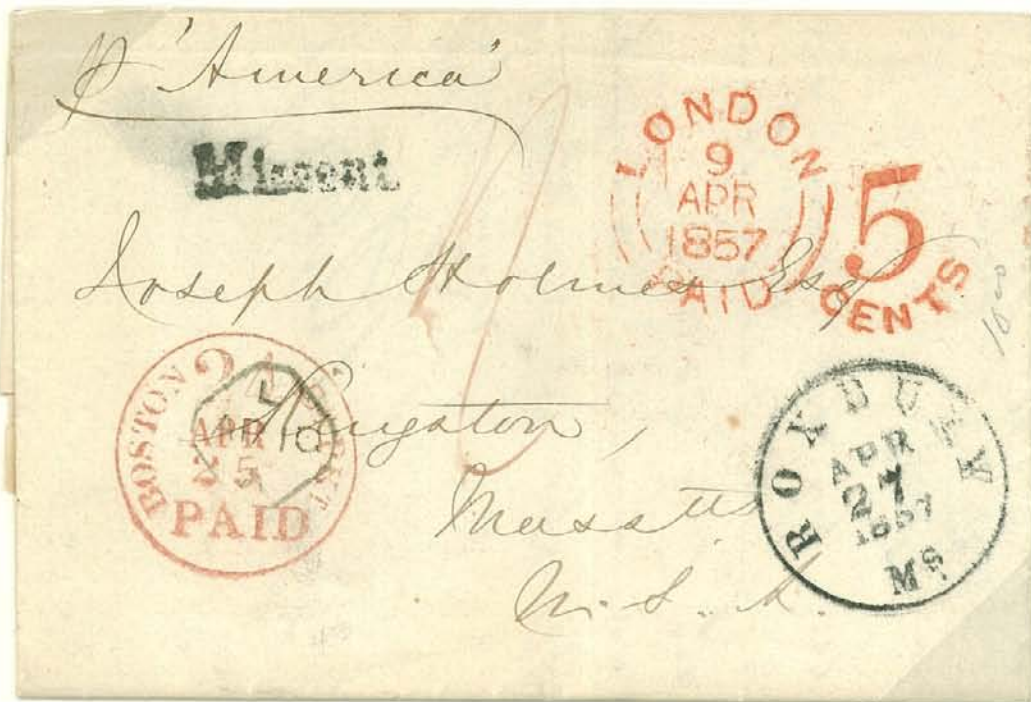 p 'America'
Missent
LONDON
9
APR
1857
PAID
5
CENTS
Joseph Holmes Esq
BOSTON 24 PKT
APR
25
PAID
L
AP 10
Kingston,
Massatts
U.S.A.
ROXBURY
APR
27
1857
Ms
1000